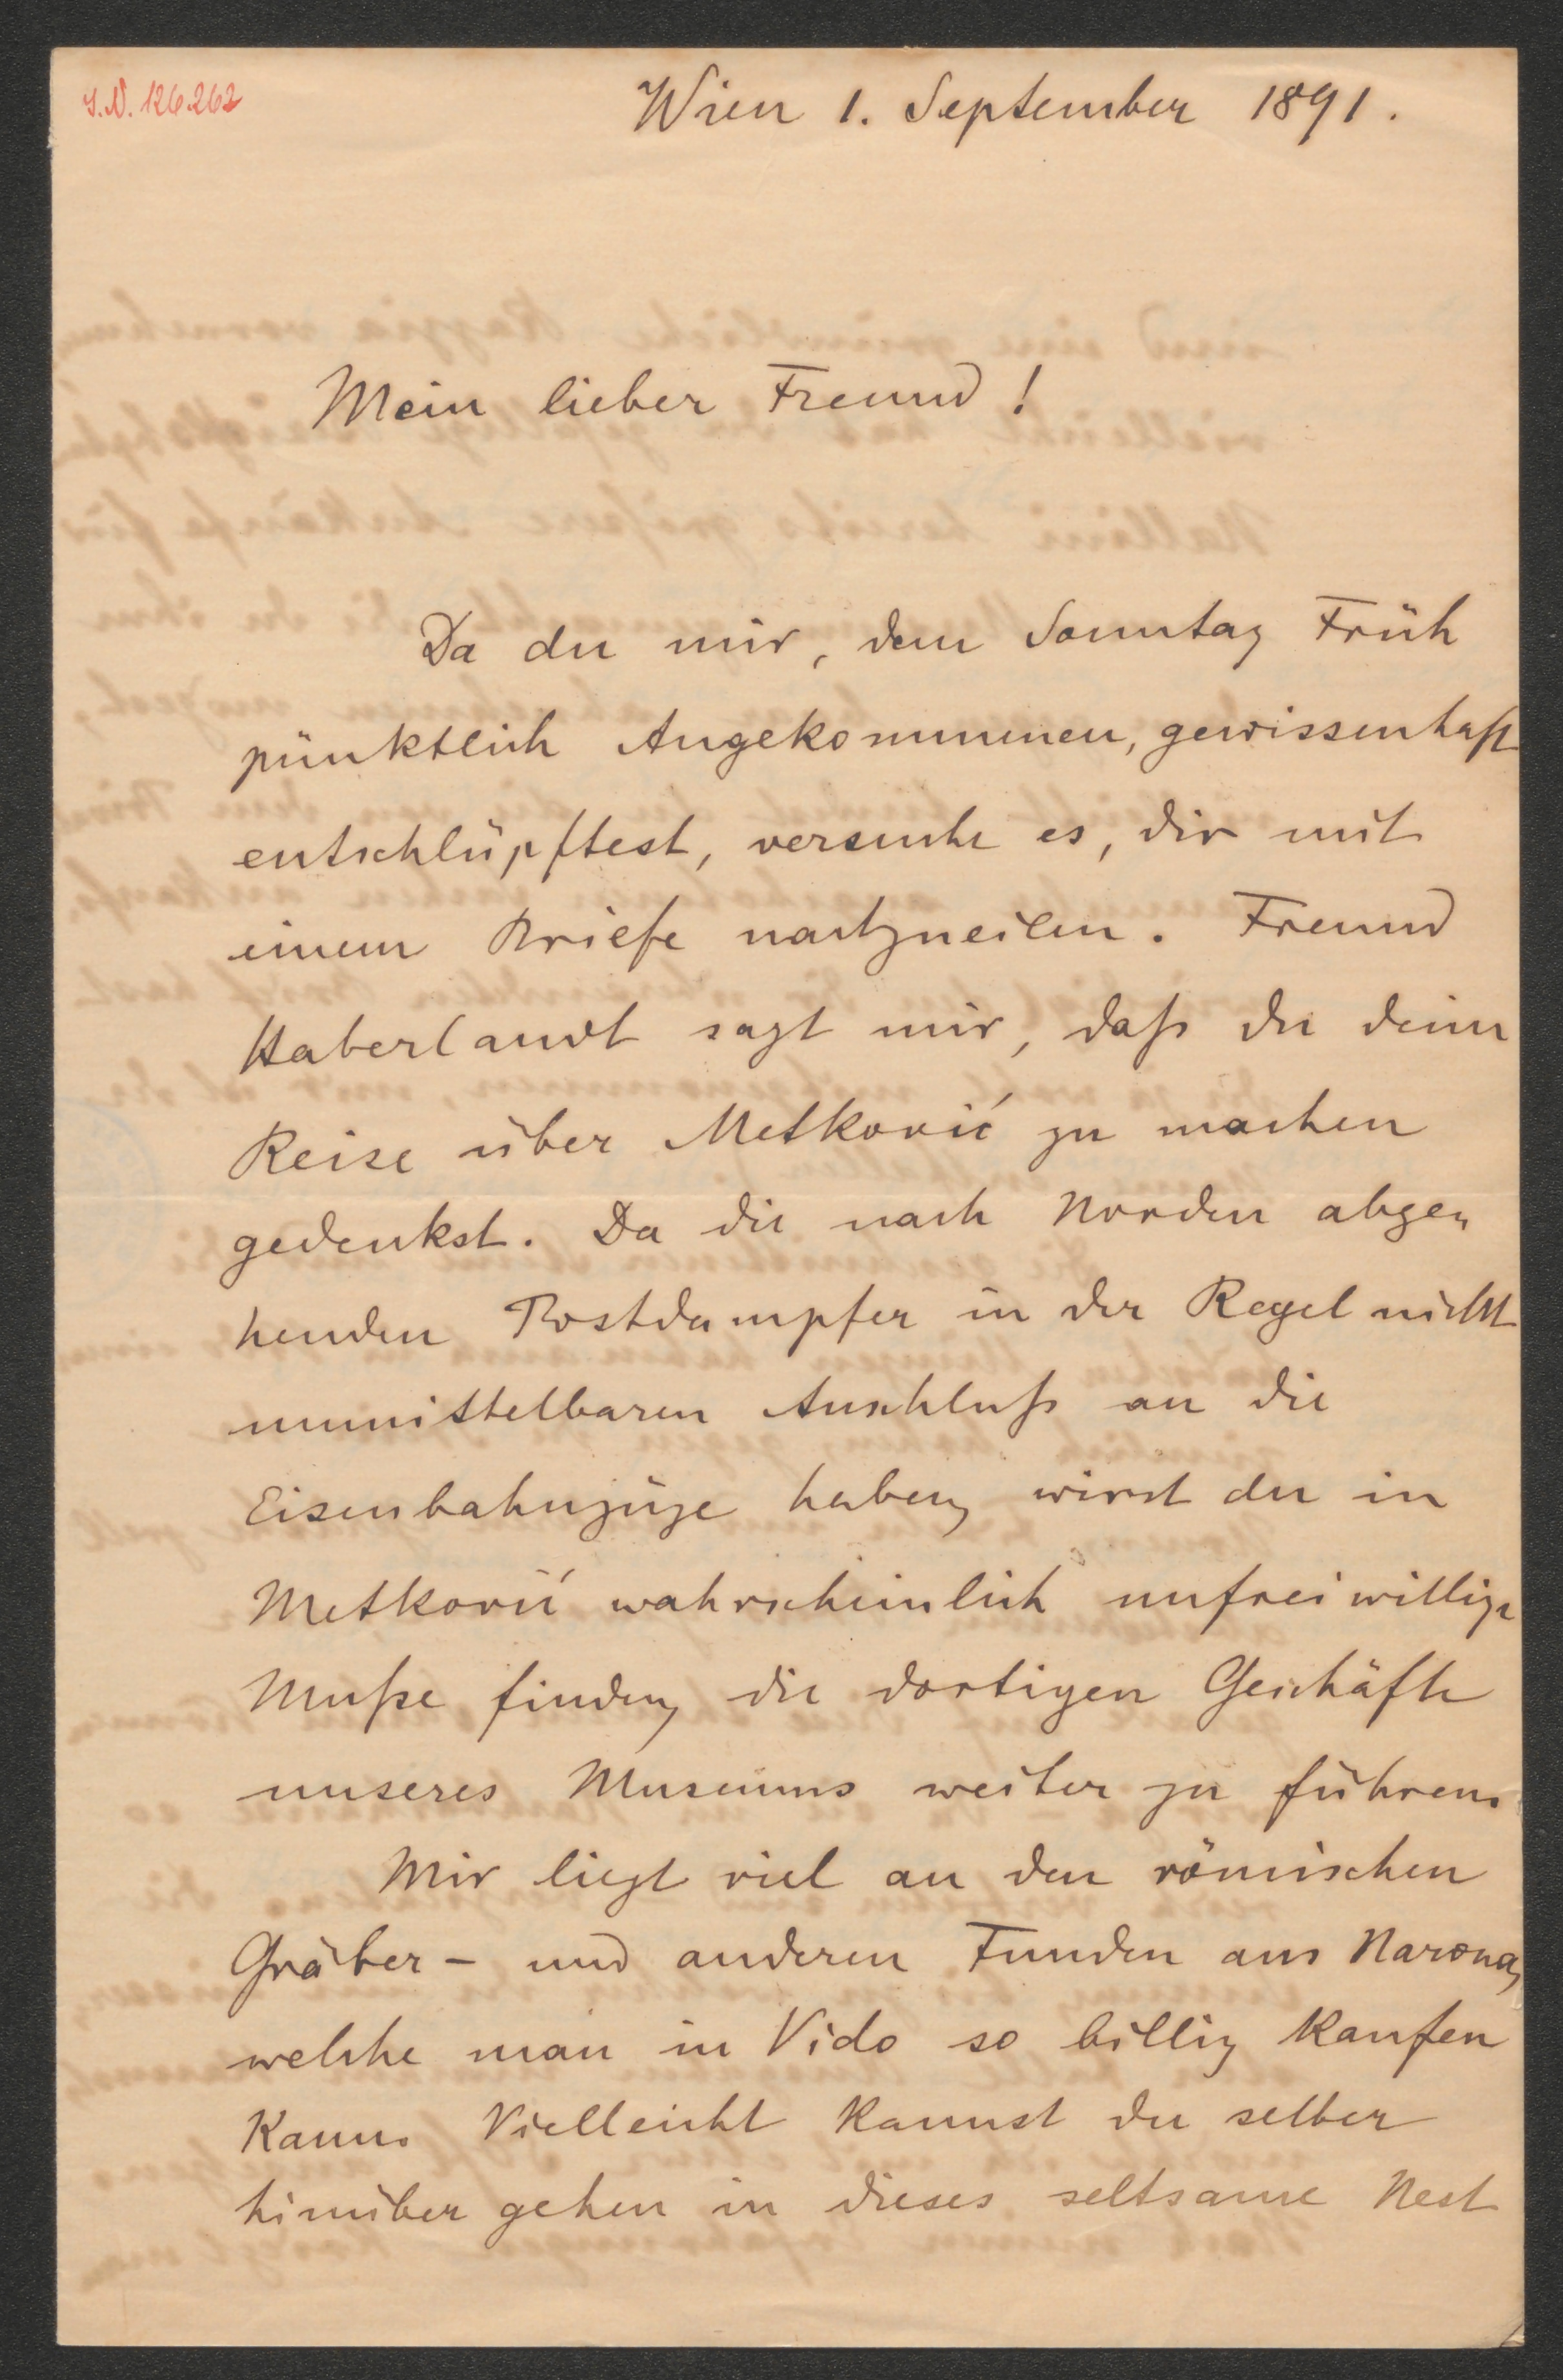 I.N. 126.262
Wien 1. September 1891.
Mein lieber Freund!
Da du mir, dem Sonntag Früh
pünktlich Angekommenen, gewissenhaft
entschlüpftest, versuche es, dir mit
einem Briefe nachzueilen. Freund
Haberlandt sagt mir, daß du deine
Reise über Metković zu machen
gedenkst. Da die nach Norden abge-
henden Postdampfer in der Regel nicht
unmittelbaren Anschluß an die
Eisenbahnzüge haben, wirst du in
Metković wahrscheinlich unfreiwillige
Muße finden, die dortigen Geschäfte
unseres Museums weiter zu führen.
Mir liegt viel an den römischen
Gräber- und anderen Funden aus Narona,
welche man in Vido so billig kaufen
kann. Vielleicht kannst du selber
hinüber gehen in dieses seltsame Nest